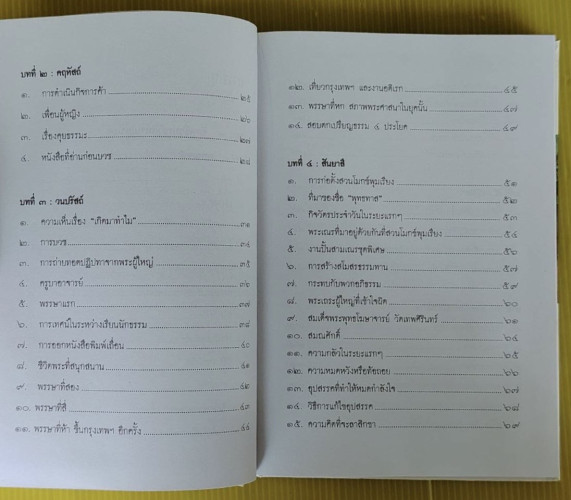 บทที่ ๒ : คฤหัสถ์
๑. การดำเนินกิจการค้า ๒๕
๒. เพื่อนผู้หญิง ๒๖
๓. เรื่องคุยธรรมะ ๒๗
๔. หนังสือที่อ่านก่อนบวช ๒๘
บทที่ ๓ : วนปรัสถ์
๑. ความเห็นเรื่อง "เกิดมาทำไม" ๓๑
๒. การบวช ๓๔
๓. การถ่ายทอดปฏิปทาจากพระผู้ใหญ่ ๓๕
๔. ครูบาอาจารย์ ๓๖
๕. พรรษาแรก ๓๗
๖. การเทศน์ในระหว่างเรียนนักธรรม ๓๘
๗. การออกหนังสือพิมพ์เถื่อน ๔๐
๘. ชีวิตพระที่สนุกสนาน ๔๑
๙. พรรษาที่สอง ๔๒
๑๐. พรรษาที่สี่ ๔๓
๑๑. พรรษาที่ห้า ขึ้นกรุงเทพฯ อีกครั้ง ๔๔
๑๒. เที่ยวกรุงเทพฯ และงานอดิเรก ๔๕
๑๓. พรรษาที่หก สภาพพระศาสนาในยุคนั้น ๔๗
๑๔. สอบตกเปรียญธรรม ๔ ประโยค ๔๙
บทที่ ๔ : สันยาสี
๑. การก่อตั้งสวนโมกข์พุมเรียง ๕๑
๒. ที่มาของชื่อ "พุทธทาส" ๕๒
๓. กิจวัตรประจำวันในระยะแรกๆ ๕๓
๔. พระเณรที่มาอยู่ด้วยกันที่สวนโมกข์พุมเรียง ๕๔
๕. งานปั้นสามเณรชุดพิเศษ ๕๖
๖. การสร้างสโมสรธรรมทาน ๕๗
๗. กระทบกับพวกอภิธรรม ๕๙
๘. พระเถระผู้ใหญ่ที่เข้าใจผิด ๖๐
๙. สมเด็จพระพุทธโฆษาจารย์ วัดเทพศิรินทร์ ๖๑
๑๐. สมณศักดิ์ ๖๔
๑๑. ความกลัวในระยะแรกๆ ๖๕
๑๒. ความหมดหวังหรือท้อถอย ๖๖
๑๓. อุปสรรคที่ทำให้หมดกำลังใจ ๖๗
๑๔. วิธีการแก้ไขอุปสรรค ๖๘
๑๕. ความคิดที่จะลาสิกขา ๖๙